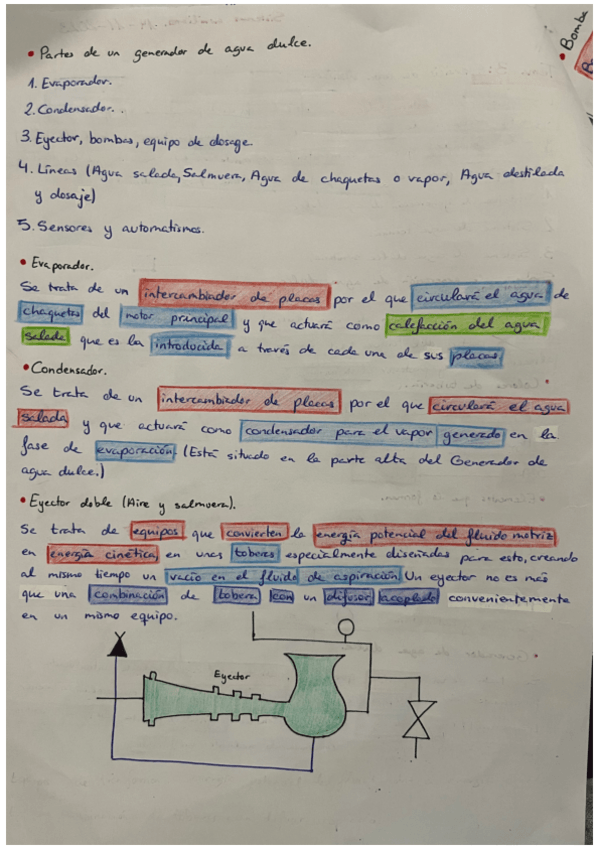 • Partes de un generador de agua dulce.
1. Evaporador.
2. Condensador..
3. Eyector, bombas, equipo de dosage.
4. Líneas (Agua salada, Salmuera, Agua de chaquetas o vapor, Agua destilada
y dosaje)
5. Sensores y automatismos.
• Evaporador.
Se trata de un intercambiador de placas por el que circulará el agua de
chaquetas del motor principal y que actuará como calefacción del agua
salada que es la introducida a través de cada una de sus placas
• Condensador.
Se trata de un intercambiador de placas por el que circulará el agua
salada y que actuará como condensador para el vapor generado en la
fase de evaporación (Está situado en la parte alta del Generador de
agua dulce.)
• Eyector doble (Aire y salmuera).
Se trata de equipos que convierten la energía potencial del fluido motriz
en energía cinética en unas toberas especialmente diseñadas para esto, creando
al mismo tiempo un vacío en el fluido de aspiración. Un eyector no es más
que una combinación de tobera con un difusor acoplado convenientemente
en un mismo equipo.
Eyector
• Bomba